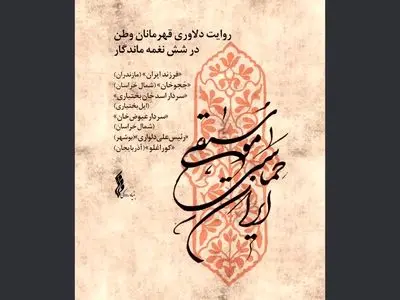 روایت دلاوری قهرمانان وطن
در شش نغمه ماندگار
«فرزند ایران» (مازندران)
«ججوخان» (شمال خراسان)
«سردار اسدخان بختیاری»
(ایل بختیاری)
«سردار عیوض خان»
(شمال خراسان)
«رئیس علی دلواری» (بوشهر)
«کوراغلو» (آذربایجان)
موسیقی
حماسی
ایران